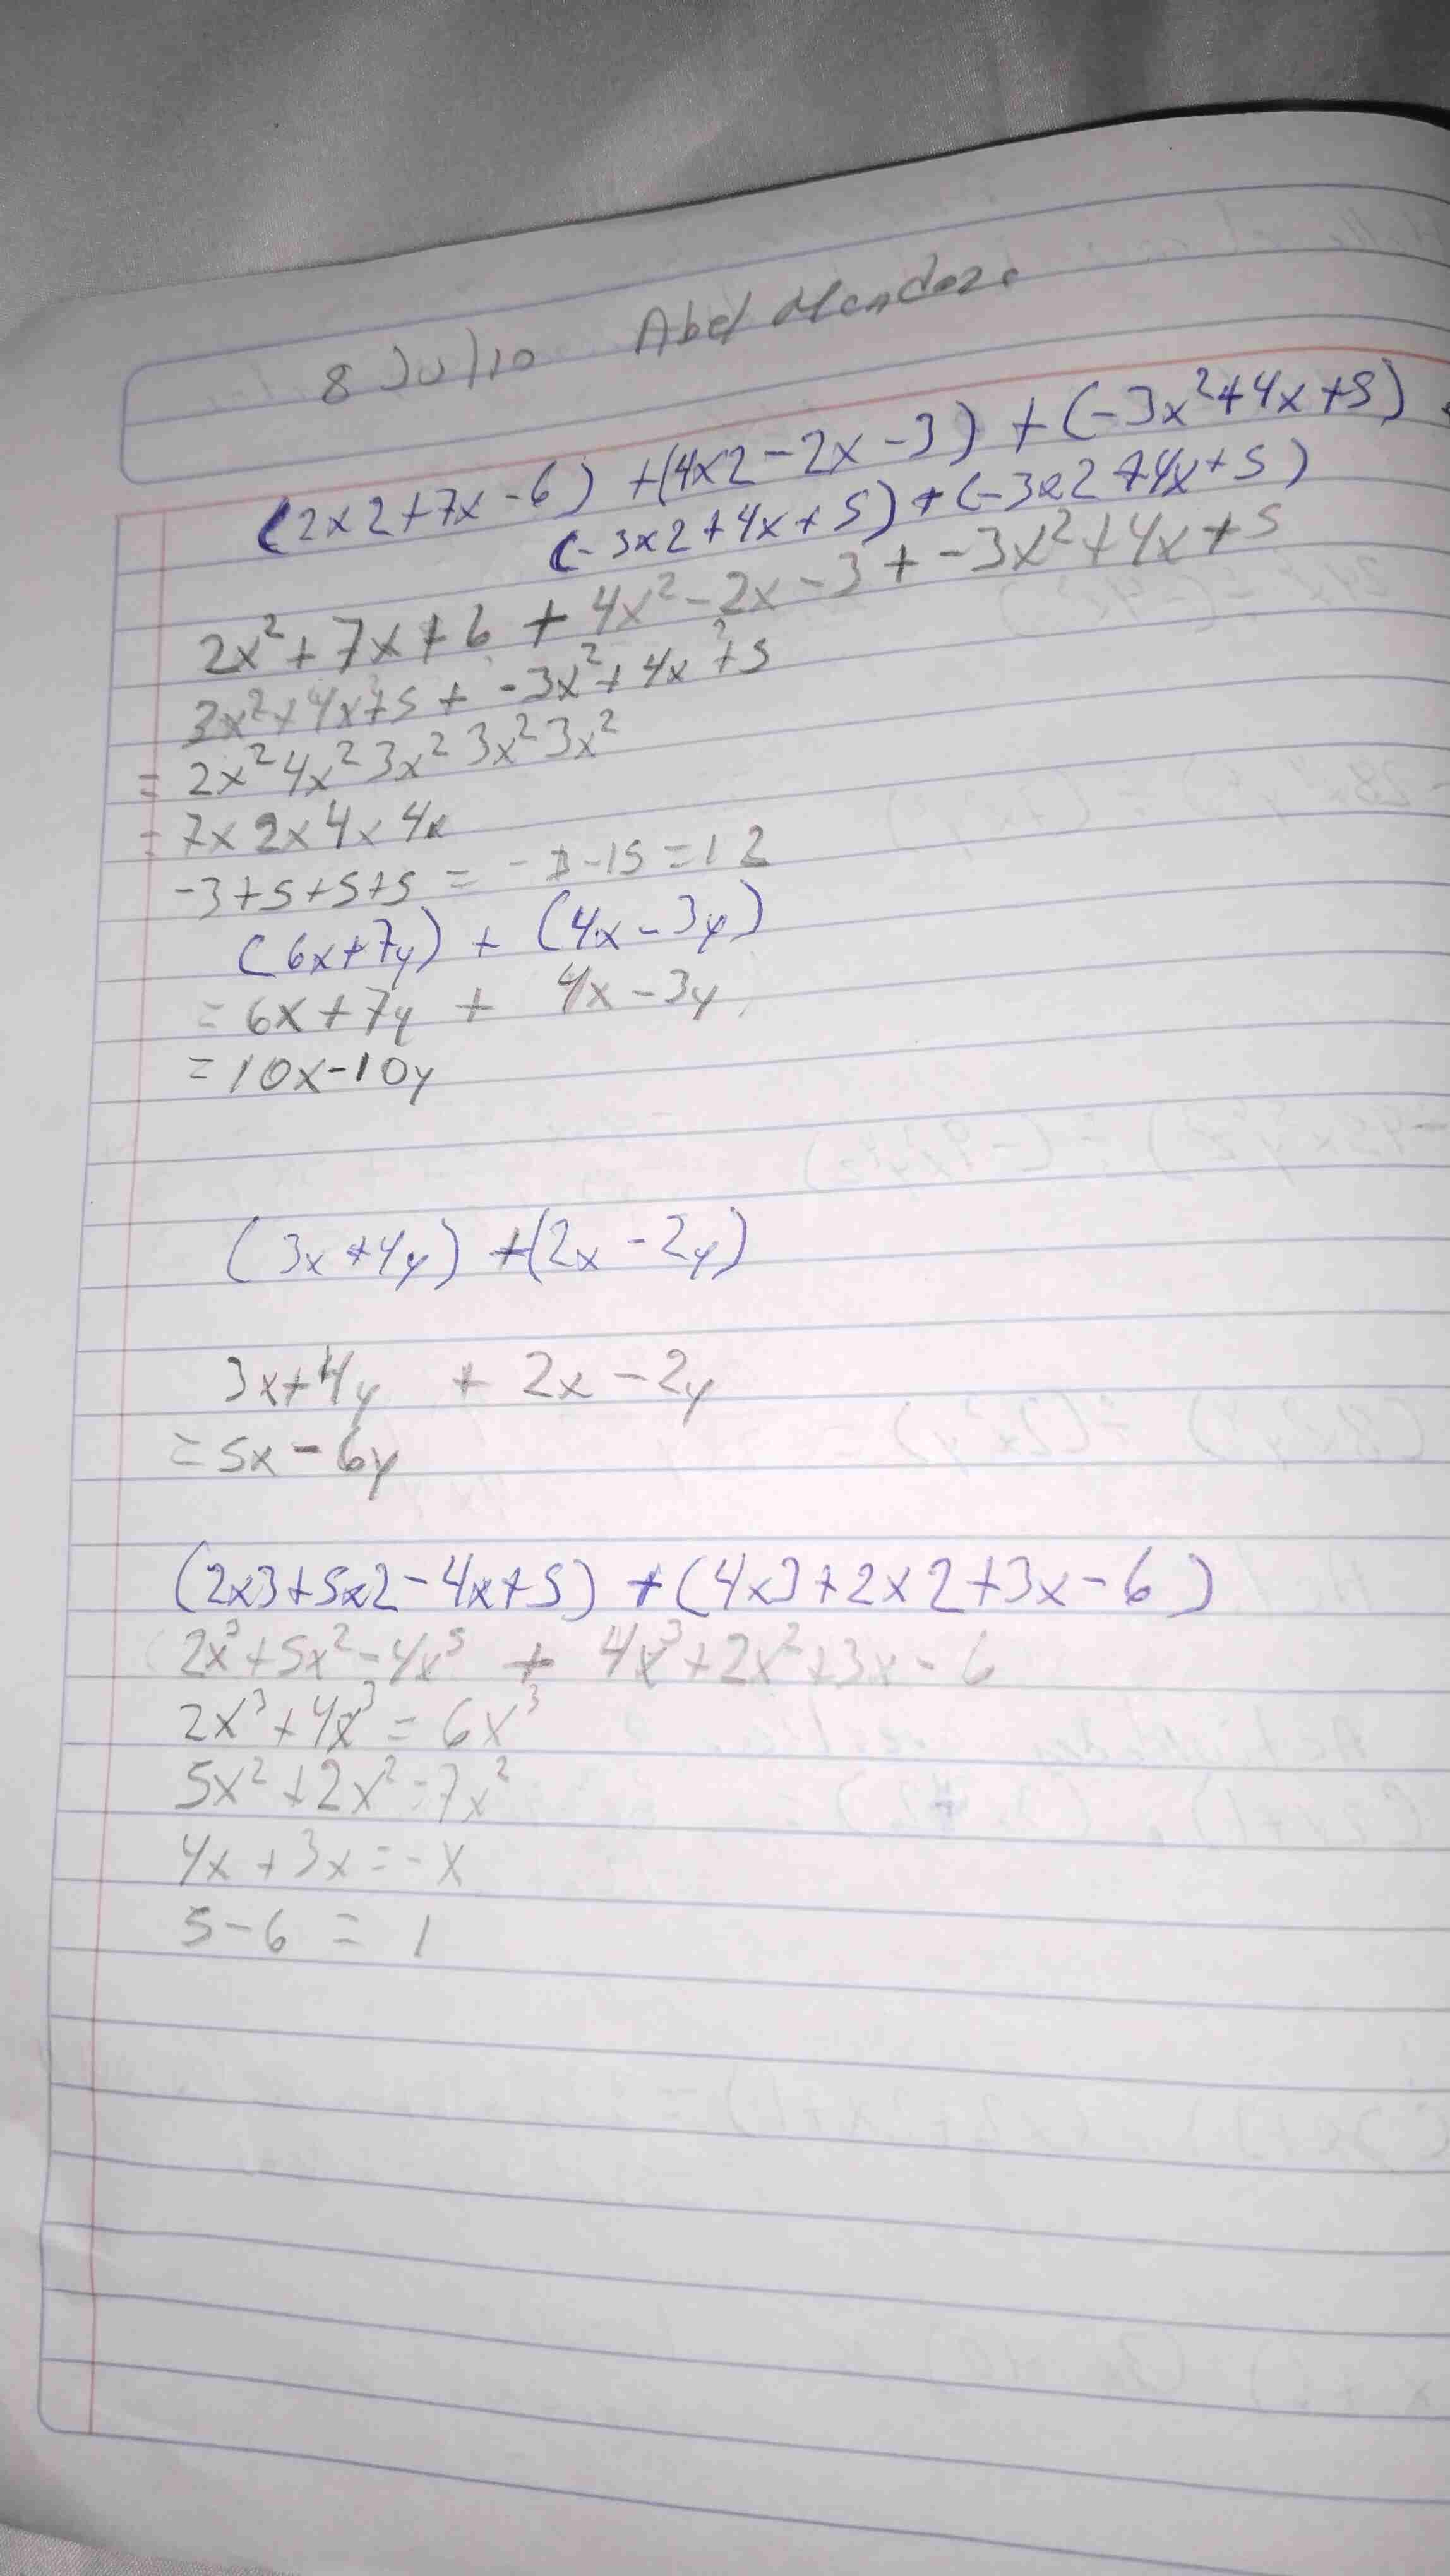 8 Julio Abel Mendoza
(2x2+7x-6) +(4x2-2x-3) +(-3x²+4x+5)
(-3x2+4x+5)+(-3x2+4x+5)
2x²+7x+6 + 4x²-2x-3 + -3x²+4x+5
3x²+4x+5 + -3x²+4x²+5
= 2x² 4x² 3x² 3x² 3x²
= 7x 2x 4x 4x
-3+5+5+5 = -3-15=12
(6x+7y) + (4x-3y)
= 6x+7y + 4x-3y
= 10x-10y
(3x+4y) +(2x-2y)
3x+4y + 2x-2y
= 5x-6y
(2x3+5x2-4x+5) +(4x3+2x2+3x-6)
2x³+5x²-4x⁵ + 4x³+2x²+3x-6
2x³+4x³=6x³
5x²+2x²=7x²
4x+3x=-x
5-6 = 1